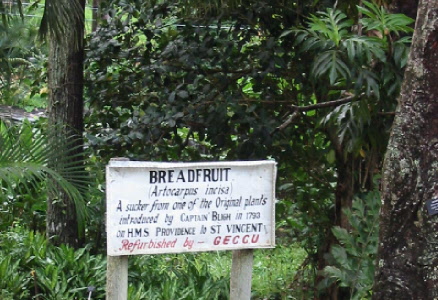 BREADFRUIT
(Artocarpus incisa)
A sucker from one of the Original plants
introduced by CAPTAIN BLIGH in 1793
on H.M.S PROVIDENCE to ST VINCENT
Refurbished by - GECCU